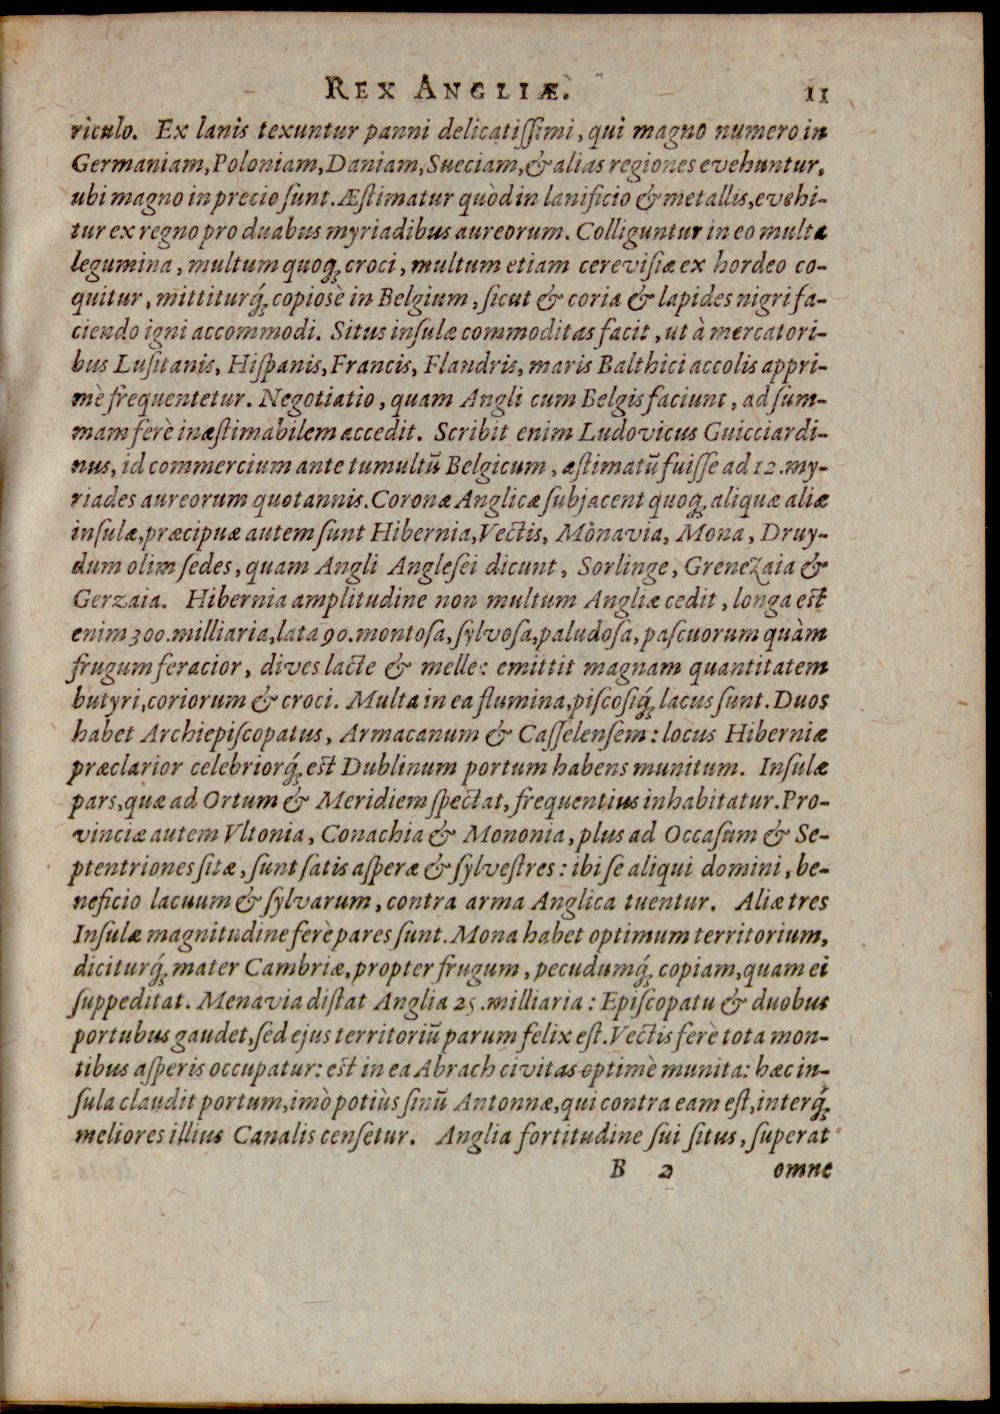 REX ANGLIÆ. 11
riculo. Ex lanis texuntur panni delicatiſſimi, qui magno numero in
Germaniam, Poloniam, Daniam, Sueciam, & alias regiones evehuntur,
ubi magno in precio ſunt. Æſtimatur quòd in lanificio & metallis, evehi-
tur ex regno pro duabus myriadibus aureorum. Colliguntur in eo multa
legumina, multum quoq; croci, multum etiam cereviſiæ ex hordeo co-
quitur, mittiturq́; copiosè in Belgium, ſicut & coria & lapides nigri fa-
ciendo igni accommodi. Situs inſulæ commoditas facit, ut à mercatori-
bus Luſitanis, Hiſpanis, Francis, Flandris, maris Balthici accolis appri-
mè frequentetur. Negotiatio, quam Angli cum Belgis faciunt, ad ſum-
mam ferè inæſtimabilem accedit. Scribit enim Ludovicus Guicciardi-
nus, id commercium ante tumultū Belgicum, æſtimatū fuiſſe ad 12. my-
riades aureorum quotannis. Coronæ Anglicæ ſubjacent quoq; aliquæ aliæ
inſulæ, præcipuæ autem ſunt Hibernia, Vectis, Mònavia, Mona, Druy-
dum olim ſedes, quam Angli Angleſei dicunt, Sorlinge, Grenezaia &
Gerzaia. Hibernia amplitudine non multum Angliæ cedit, longa eſt
enim 300. milliaria, lata 90. montoſa, ſylvoſa, paludoſa, paſcuorum quàm
frugum feracior, dives lacte & melle: emittit magnam quantitatem
butyri, coriorum & croci. Multa in ea flumina, piſcoſiq́; lacus ſunt. Duos
habet Archiepiſcopatus, Armacanum & Caſſelenſem: locus Hiberniæ
præclarior celebriorq́; eſt Dublinum portum habens munitum. Inſulæ
pars, quæ ad Ortum & Meridiem ſpectat, frequentius inhabitatur. Pro-
vinciæ autem Vltonia, Conachia & Mononia, plus ad Occaſum & Se-
ptentriones ſitæ, ſunt ſatis aſperæ & ſylveſtres: ibi ſe aliqui domini, be-
neficio lacuum & ſylvarum, contra arma Anglica tuentur. Aliæ tres
Inſulæ magnitudine ferè pares ſunt. Mona habet optimum territorium,
diciturq́; mater Cambriæ, propter frugum, pecudumq́; copiam, quam ei
ſuppeditat. Menavia diſtat Anglia 25. milliaria: Epiſcopatu & duobus
portubus gaudet, ſed ejus territoriū parum felix eſt. Vectis ferè tota mon-
tibus aſperis occupatur: eſt in ea Abrach civitas optimè munita: hæc in-
ſula claudit portum, imò potiùs ſinū Antonnæ, qui contra eam eſt, interq́;
meliores illius Canalis cenſetur. Anglia fortitudine ſui ſitus, ſuperat
B 2 omne